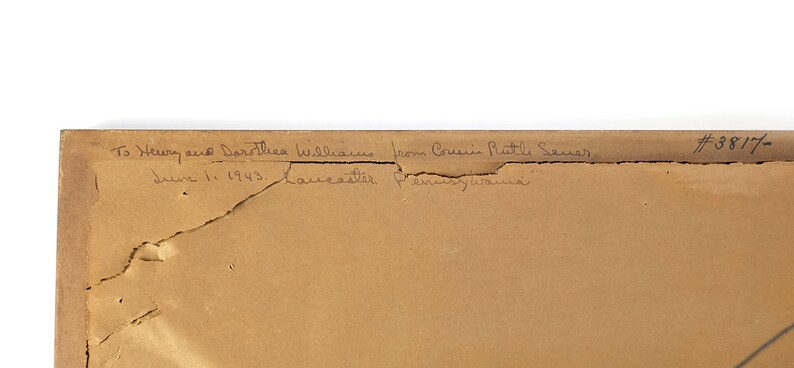 To Henry and Dorothea Williams from Cousin Ruth Sener. #3817-
June 1. 1943. Lancaster Pennsylvania